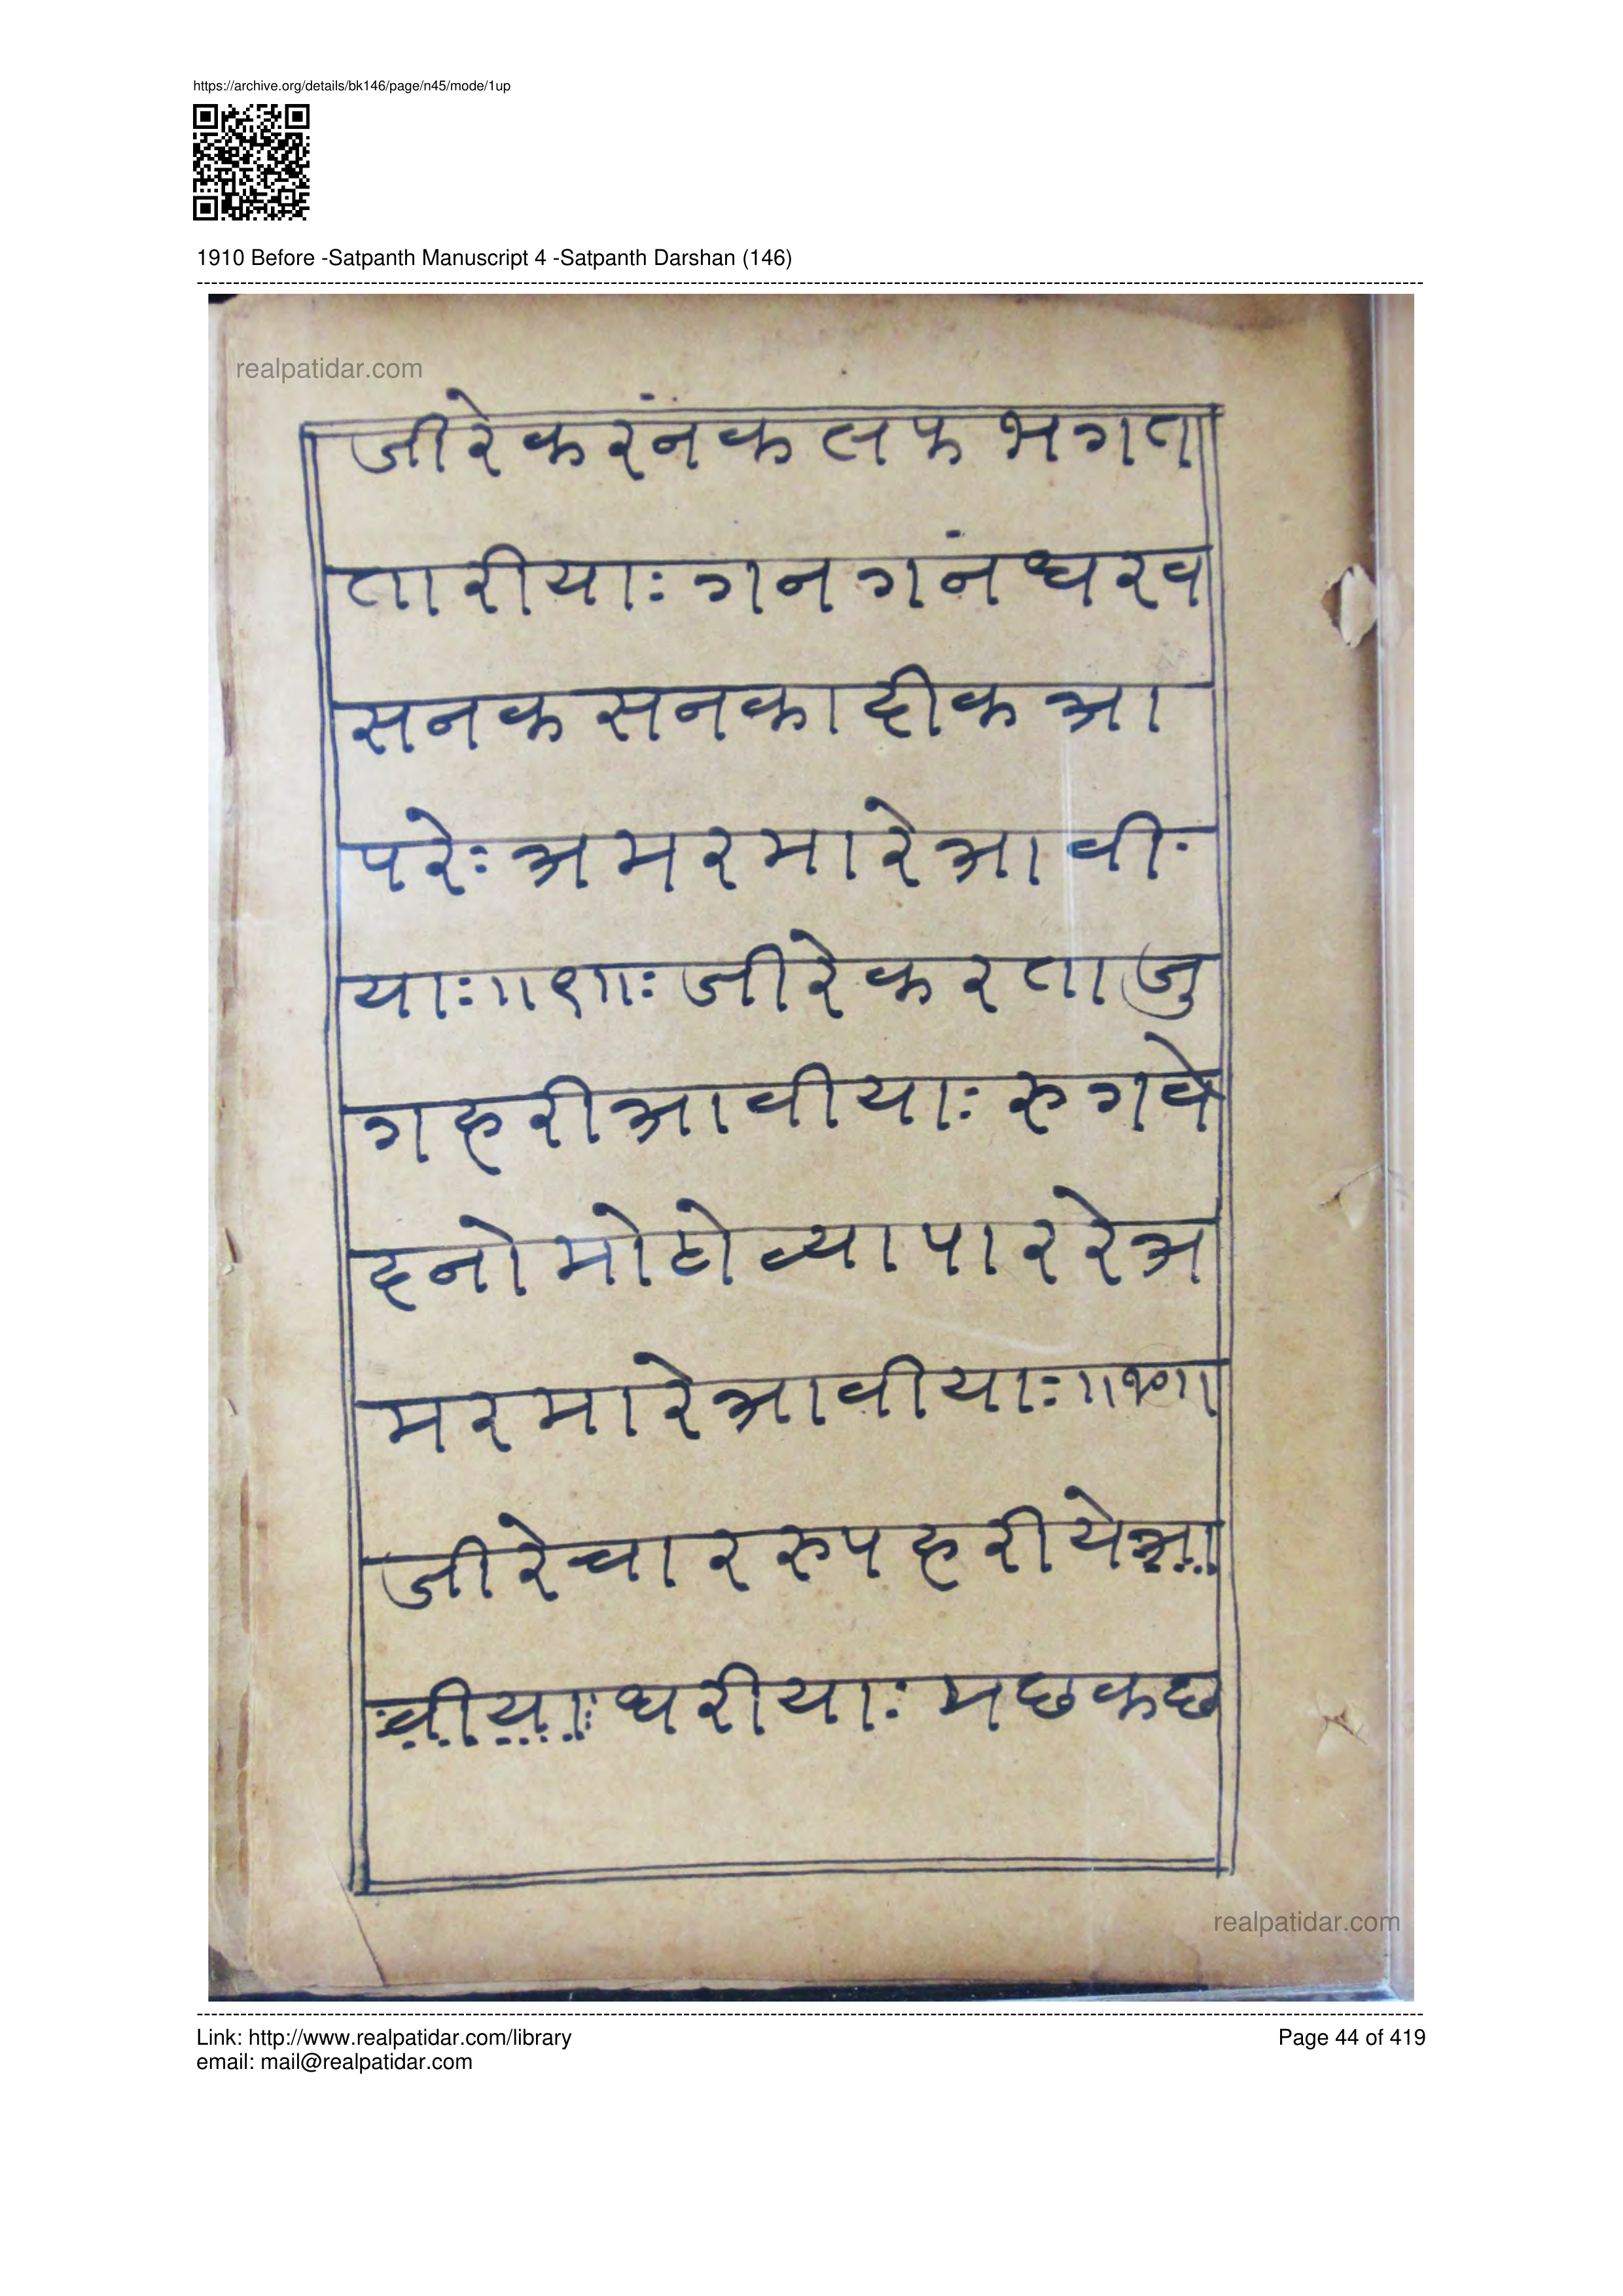 https://archive.org/details/bk146/page/n45/mode/1up
1910 Before -Satpanth Manuscript 4 -Satpanth Darshan (146)
realpatidar.com
जीरेकरंनकलफभगता
तारीयाः गनगनंधरव
सनकसनकादीकआ
परेः अमरमारेआवी
याः॥९॥ः जीरेकरताजु
गहरीआवीयाः रुगवे
दनोमोटोव्यापाररेअ
मरमारेआवीयाः॥१०॥
जीरेचाररुपहरीयेआ
वीयाःधरीयाः मछकछ
realpatidar.com
Link: http://www.realpatidar.com/library
Page 44 of 419
email: mail@realpatidar.com